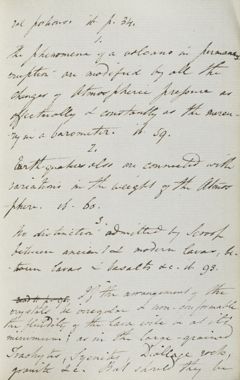 p. 34.
1.
The phenomena of a volcano in permanent
eruption are modified by all the
changes of Atmospheric pressure as
effectually & constantly as the mercu-
ry in a barometer. it 59.
2.
Earthquakes also are connected with
variations in the weight of the Atmos
phere. it. 60.
3.
No distinction admitted by Scrope
between ancient & modern lavas, be-
tween lavas & basalts &c. it. 93.
If the arrangement of the
crystals is irregular & non-conformable
the fluidity of the lava was at its
minimum; as in the large-grained
Trachytes, Syenites, Diallage rock,
granite &c. But should they be